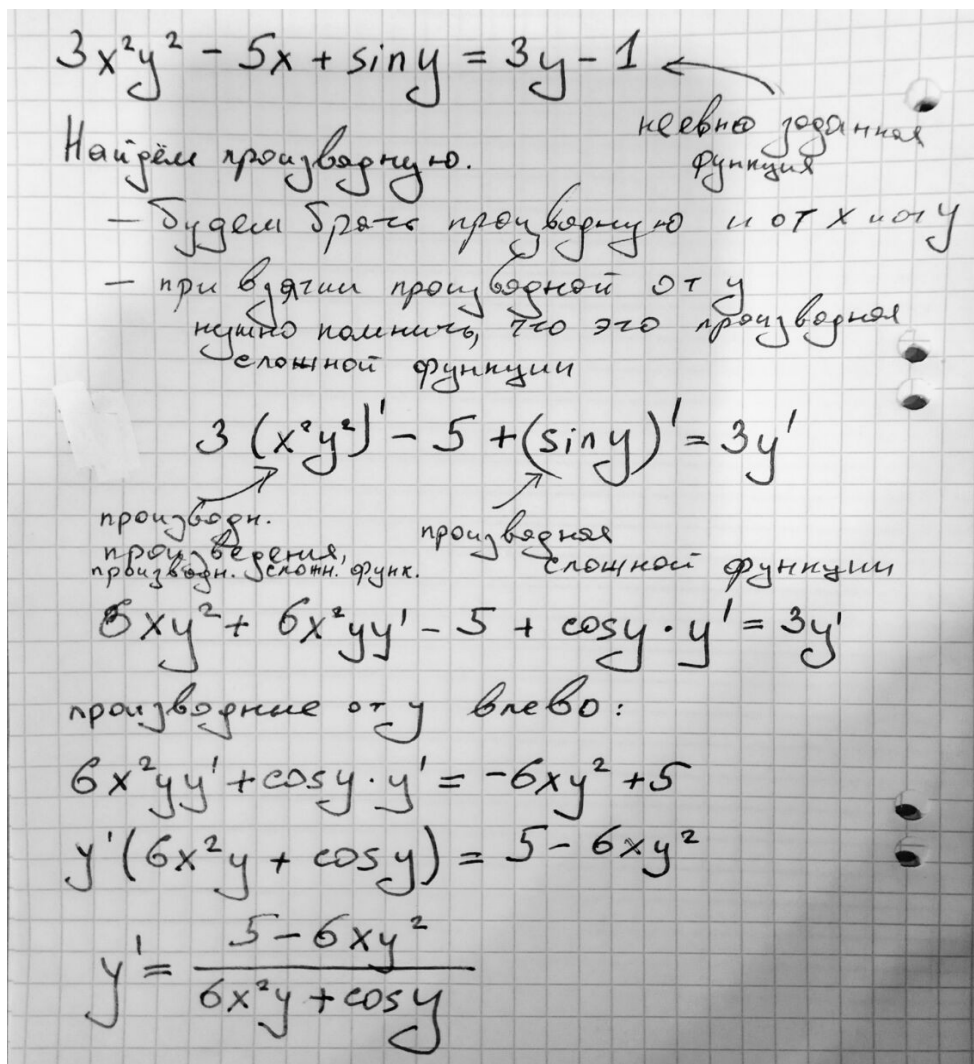 3x²y² - 5x + siny = 3y - 1
неявно заданная
функция
Найдём производную.
- будем брать производную и от x и от y
- при взятии производной от y
нужно помнить, что это производная
сложной функции
3 (x²y²)' - 5 + (siny)' = 3y'
производн.
произведения,
производн. сложн. функ.
производная
сложной функции
6xy² + 6x²yy' - 5 + cosy · y' = 3y'
производные от y влево:
6x²yy' + cosy · y' = -6xy² + 5
y'(6x²y + cosy) = 5 - 6xy²
y' = (5 - 6xy²)/(6x²y + cosy)